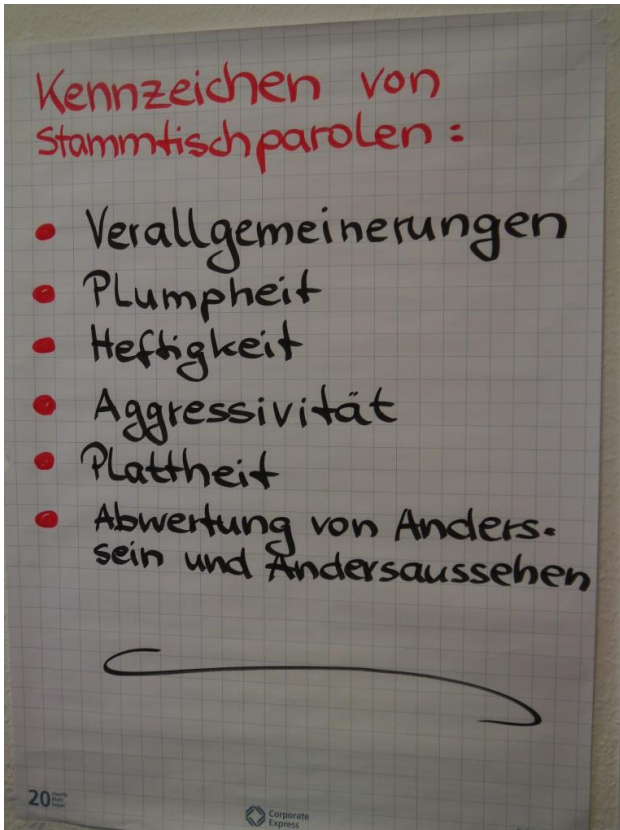 Kennzeichen von
Stammtischparolen:
• Verallgemeinerungen
• Plumpheit
• Heftigkeit
• Aggressivität
• Plattheit
• Abwertung von Anders-
sein und Andersaussehen
20
Corporate
Express